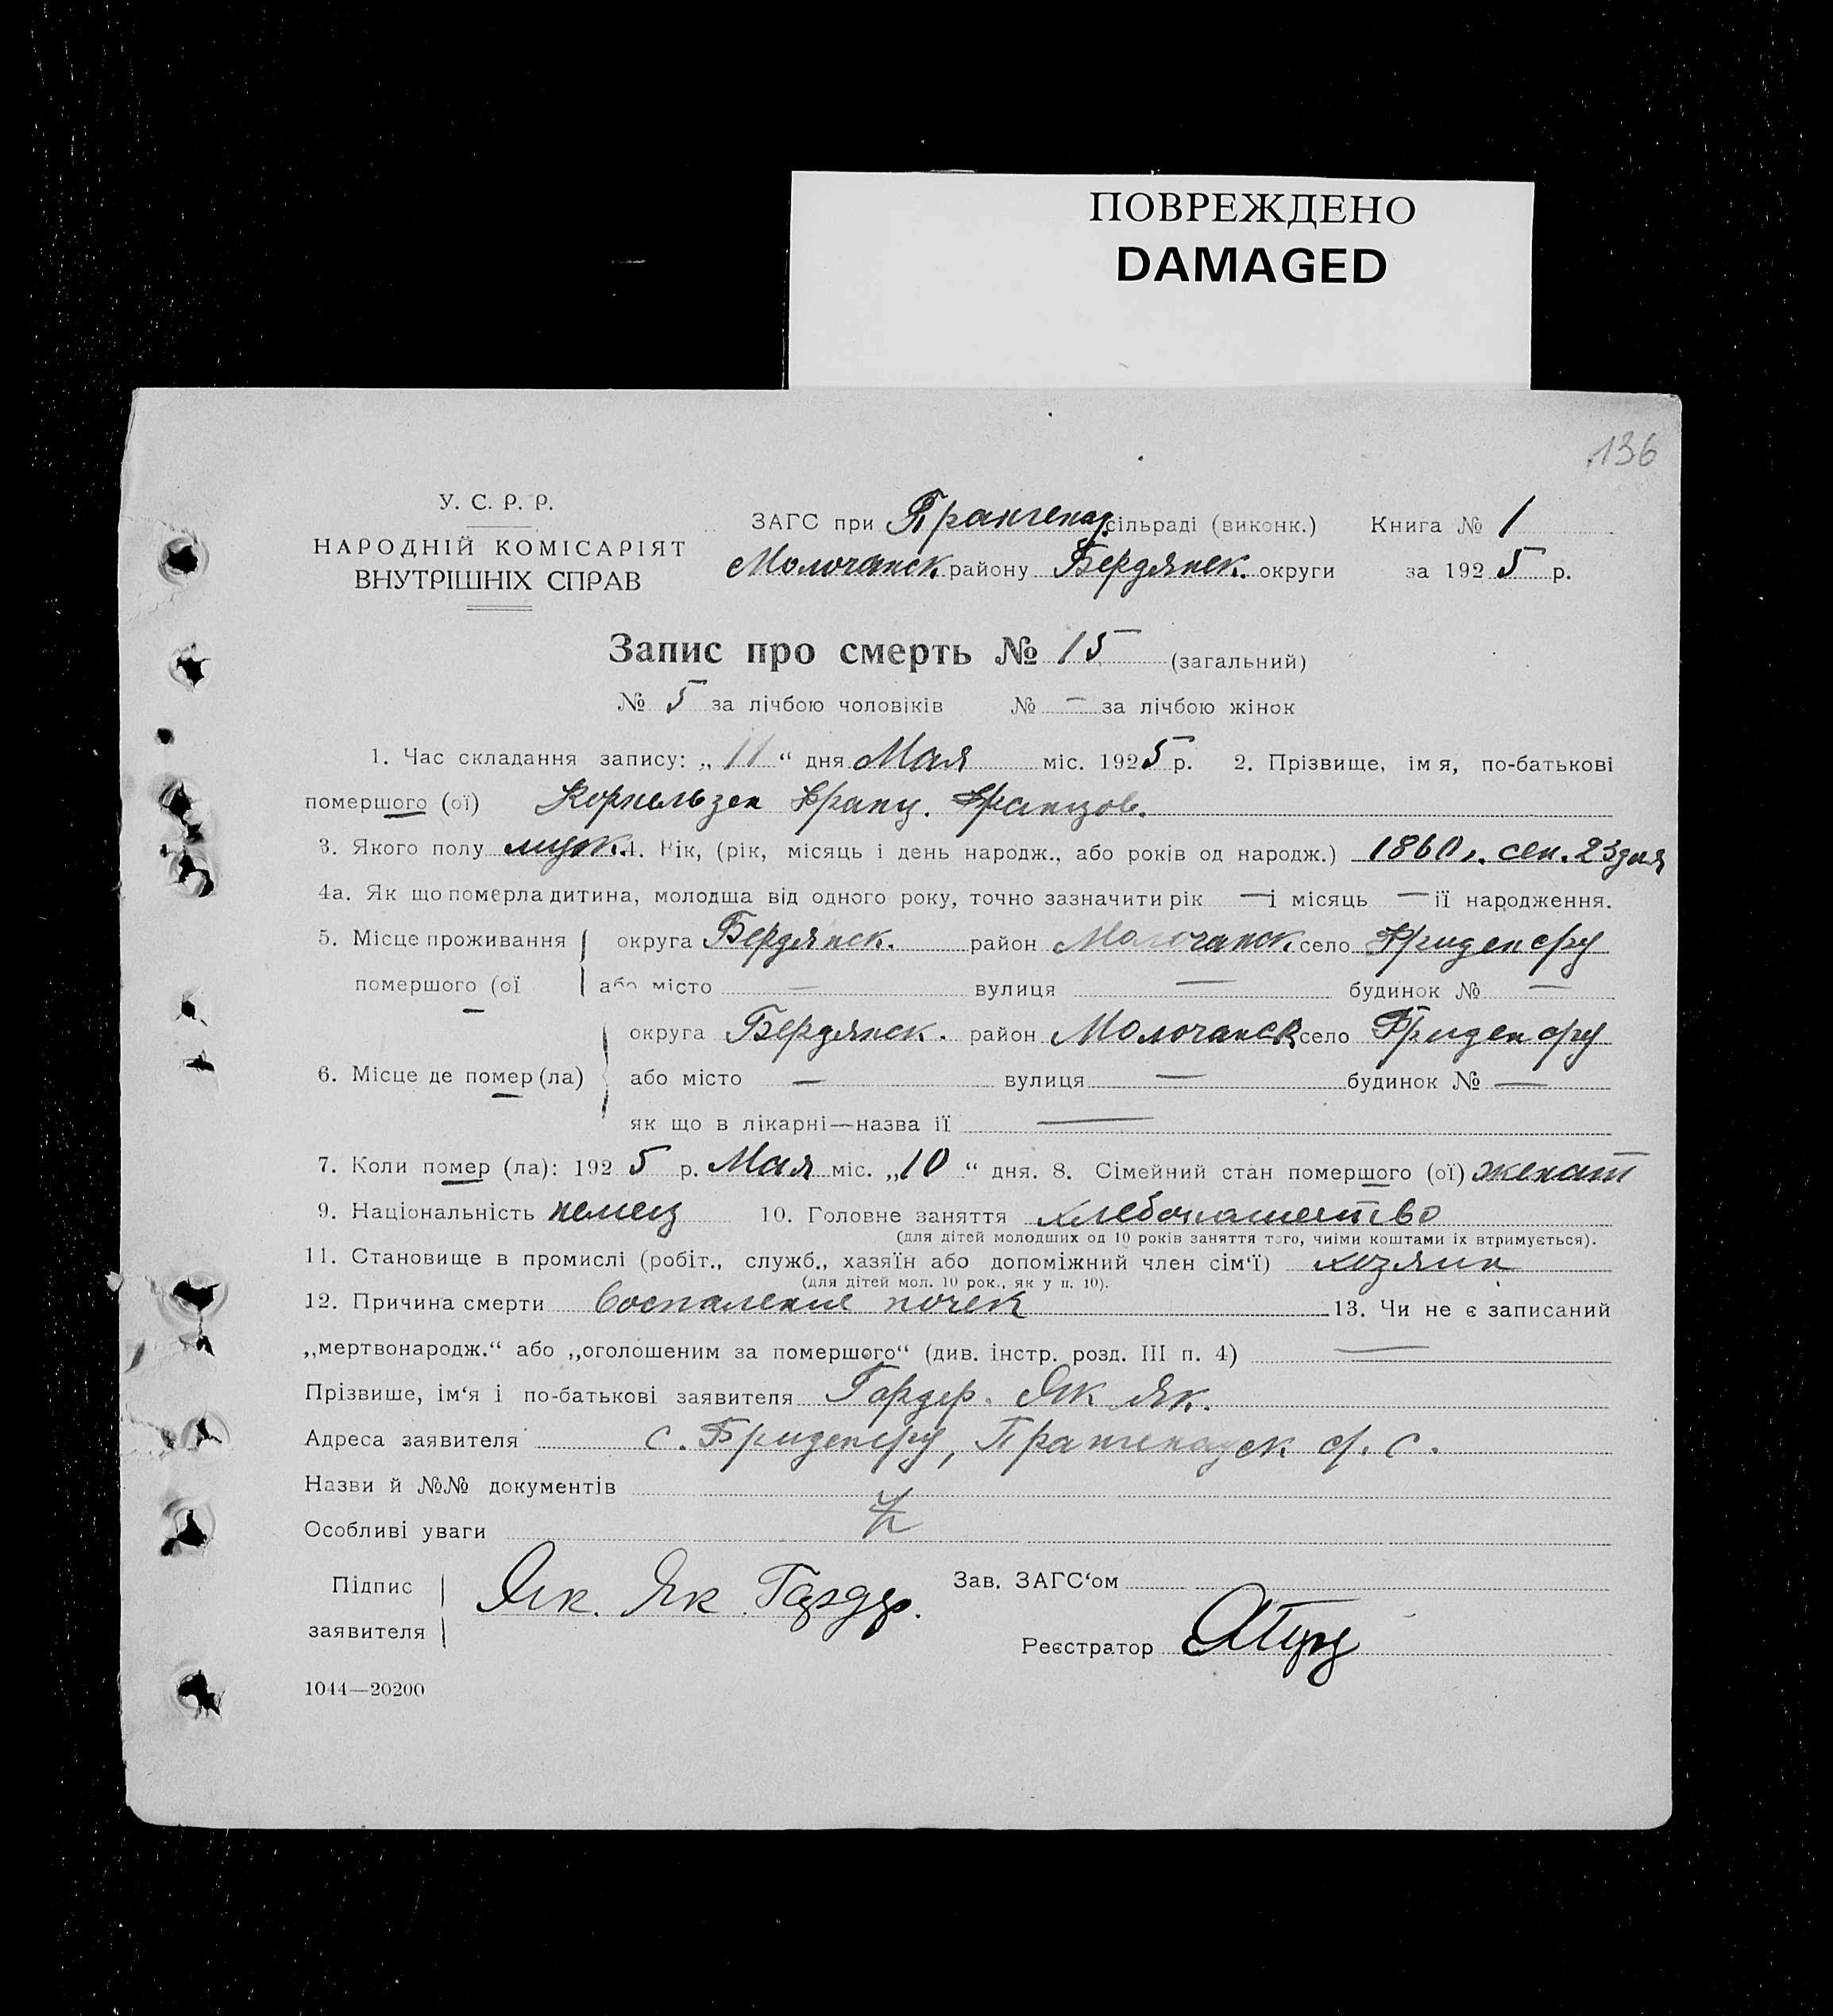 ПОВРЕЖДЕНО
DAMAGED
136
У. С. Р. Р.
НАРОДНІЙ КОМІСАРІЯТ
ВНУТРІШНІХ СПРАВ
ЗАГС при Прангенау. сільраді (виконк.) Книга № 1
Молочанск. району Бердянск. округи за 1925 р.
Запис про смерть № 15 (загальний)
№ 5 за лічбою чоловіків № — за лічбою жінок
1. Час складання запису: „11“ дня Мая міс. 1925 р. 2. Прізвище, імя, по-батькові
помершого (ої) Корнельзен Франц. Францов.
3. Якого полу мужк. 4. Вік, (рік, місяць і день народж., або років од народж.) 1860 г. сен. 23 дня
4а. Як що померла дитина, молодша від одного року, точно зазначити рік — і місяць — її народження.
5. Місце проживання округа Бердянск. район Молочанск. село Фриденсру
помершого (ої або місто — вулиця — будинок № —
округа Бердянск. район Молочанск село Фриденсру
6. Місце де помер (ла) або місто — вулиця — будинок № —
як що в лікарні—назва її —
7. Коли помер (ла): 1925 р. Мая міс. „10“ дня. 8. Сімейний стан помершого (ої) женат
9. Національність немец 10. Головне заняття хлебопашество
(для дітей молодших од 10 років заняття того, чиїми коштами їх втримується).
11. Становище в промислі (робіт., служб., хазяїн або допоміжний член сім‘ї) хозяин
(для дітей мол. 10 рок., як у п. 10).
12. Причина смерти Воспаление почек 13. Чи не є записаний
„мертвонародж.“ або „оголошеним за помершого“ (див. інстр. розд. III п. 4) —
Прізвише, ім‘я і по-батькові заявителя Гардер. Як Як.
Адреса заявителя с. Фриденсру, Прангенауск с. с.
Назви й №№ документів
Особливі уваги
Підпис
заявителя Як. Як. Гардер.
Зав. ЗАГС‘ом
Реєстратор
1044—20200